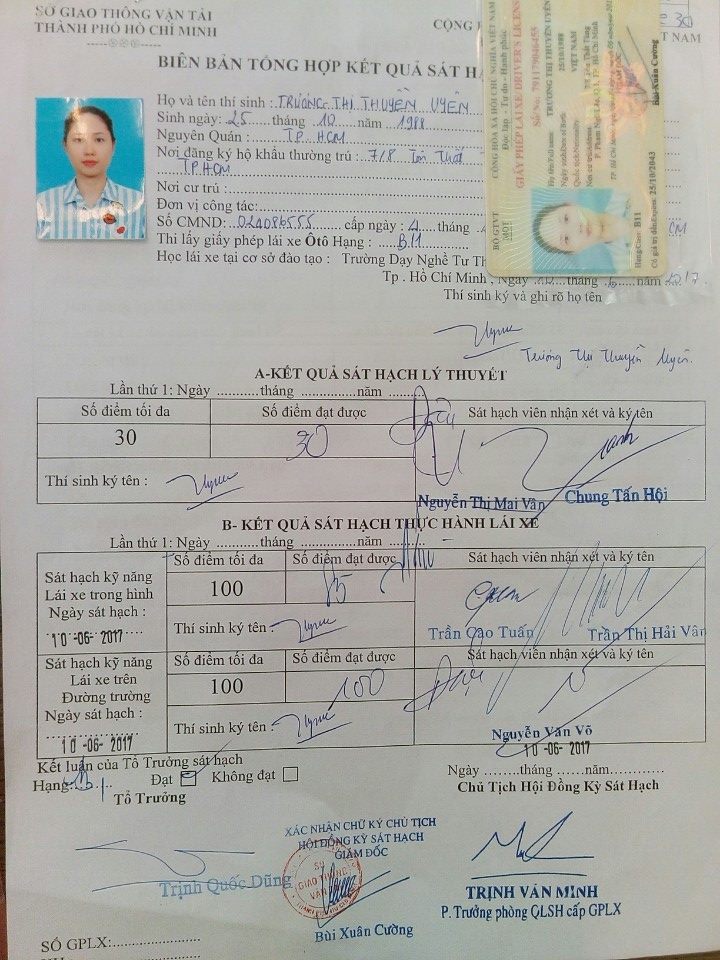 SỞ GIAO THÔNG VẬN TẢI
THÀNH PHỐ HỒ CHÍ MINH
CỘNG
30
T NAM
BIÊN BẢN TỔNG HỢP KẾT QUẢ SÁT HẠ
Họ và tên thí sinh : TRƯƠNG THỊ THUYỀN UYÊN
Sinh ngày: 25 tháng 10 năm 1988
Nguyên Quán : TP. HCM
Nơi đăng ký hộ khẩu thường trú : 7/8 Tôn Thất
TP HCM
Nơi cư trú :
Đơn vị công tác:
Số CMND: 024086555 cấp ngày : 4 tháng
CM
Thi lấy giấy phép lái xe Ôtô Hạng : B11
Học lái xe tại cơ sở đào tạo : Trường Dạy Nghề Tư Th
Tp . Hồ Chí Minh , Ngày tháng năm 2017
Thí sinh ký và ghi rõ họ tên
Trương Thị Thuyền Uyên
CỘNG HÒA XÃ HỘI CHỦ NGHĨA VIỆT NAM
Độc lập - Tự do - Hạnh phúc
GIẤY PHÉP LÁI XE/DRIVER'S LICENS
Số/No: 791179046455
Họ tên/Full name TRƯƠNG THỊ THUYỀN UYÊN
Ngày sinh/Date of Birth 25/10/1988
Quốc tịch/Nationality VIỆT NAM
Nơi cư trú/Address 7/8 Tôn Thất Tùng
P. Phạm Ngũ Lão, Q.1, TP. Hồ Chí Minh
Bùi Xuân Cường
BỘ GTVT
MOT
Hạng/Class: B11
Có giá trị đến/Expires: 25/10/2043
A-KẾT QUẢ SÁT HẠCH LÝ THUYẾT
Lần thứ 1: Ngày ...........tháng ..............năm ........
Số điểm tối đa
Số điểm đạt được
Sát hạch viên nhận xét và ký tên
30
30
Thí sinh ký tên :
Nguyễn Thị Mai Vân
Chung Tấn Hội
B- KẾT QUẢ SÁT HẠCH THỰC HÀNH LÁI XE
Lần thứ 1: Ngày ...........tháng ..............năm ........
Sát hạch kỹ năng
Lái xe trong hình
Ngày sát hạch :
10 -06- 2017
Số điểm tối đa
Số điểm đạt được
Sát hạch viên nhận xét và ký tên
100
85
Thí sinh ký tên :
Trần Cao Tuấn
Trần Thị Hải Vân
Sát hạch kỹ năng
Lái xe trên
Đường trường
Ngày sát hạch :
10 -06- 2017
Số điểm tối đa
Số điểm đạt được
Sát hạch viên nhận xét và ký tên
100
100
Đạt
Thí sinh ký tên :
Nguyễn Văn Võ
10 -06- 2017
Kết luận của Tổ Trưởng sát hạch
Hạng: Đạt Không đạt
Tổ Trưởng
Ngày ........tháng ......năm.............
Chủ Tịch Hội Đồng Kỳ Sát Hạch
XÁC NHẬN CHỮ KÝ CHỦ TỊCH
HỘI ĐỒNG KỲ SÁT HẠCH
GIÁM ĐỐC
SỞ
GIAO THÔNG
VẬN TẢI
Trịnh Quốc Dũng
Bùi Xuân Cường
TRỊNH VĂN MINH
P. Trưởng phòng QLSH cấp GPLX
SỐ GPLX: